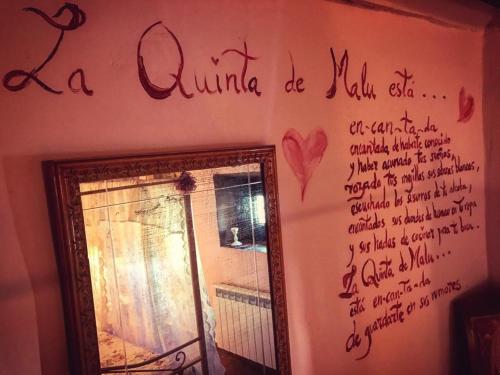 La Quinta de Malu está ...
en-can-ta-da
encantada de haberte conocido
y haber acunado tus sueños,
rozado tus mejillas sus sábanas blancas,
escuchado los susurros de tu alcoba,
encantados sus duendes de en tu ropa
y sus hadas de cocinar para ti bien.
La Quinta de Malu...
está en-can-ta-da
de guardarte en sus rumores